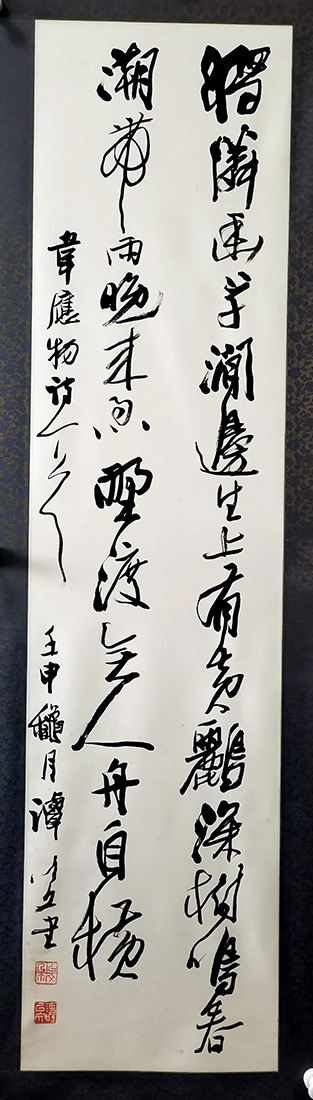 獨憐幽草澗邊生上有黃鸝深樹鳴春
潮帶雨晚來急野渡無人舟自橫
韋應物詩一首 壬申龝月譚書